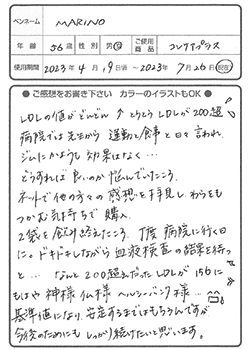 ペンネーム MARINO
年齢 56歳 性別 男・女 ご使用商品 コレケアプラス
使用期間 2023年 4月 19日頃〜2023年 7月 26日(現在)
●ご感想をお書き下さい カラーのイラストもOK●
LDLの値がどんどん↑とうとうLDLが200超
病院では先生から 運動と食事と日々言われ、
ジムにかようも効果はなく…
どうすれば良いのか悩んでいたころ。
ネットで他の方々の感想を拝見しわらをも
つかむ気持ちで購入。
2袋を飲み終えたころ。丁度病院に行く日
に。ドキドキしながら血液検査の結果を待つ
と… なんと200超えだったLDLが156に
もはや神様 仏様 ヘルシーバンク様…
基準値になり、安定するまではもちろんですが
今後のためにもしっかり続けたいと思います。